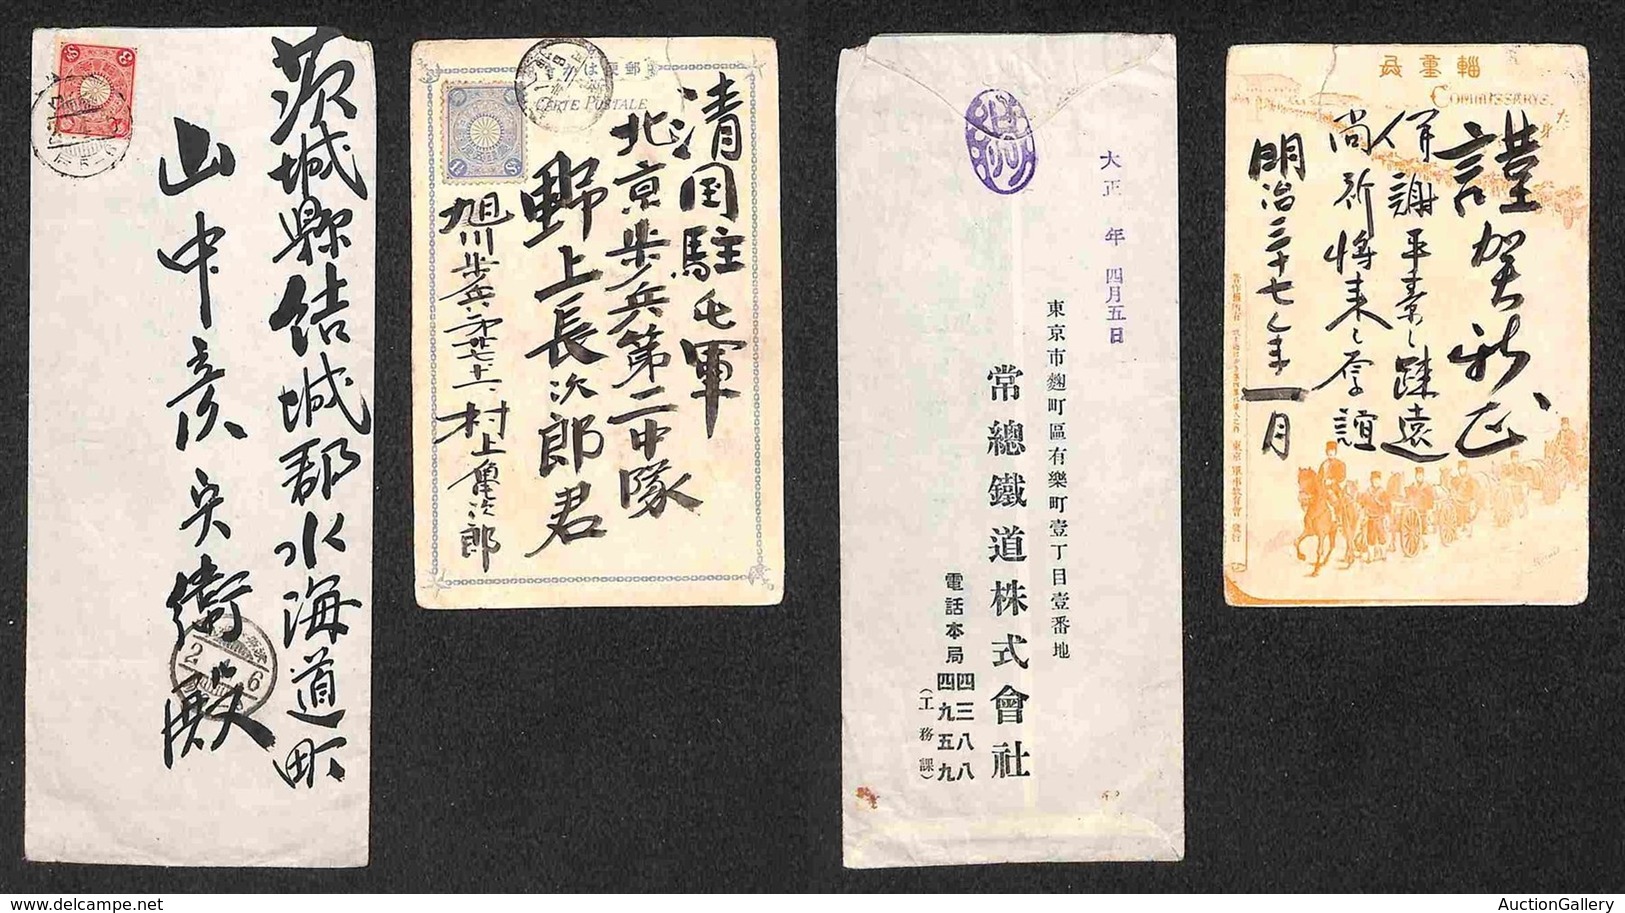 茨城縣結城郡水海道町
山中彦兵衛殿
郵便はかき
CARTE POSTALE
清国駐屯軍
北京歩兵第二中隊
野上長次郎君
旭川歩兵二十七ノ十一
村上亀次郎
大正 年 四月五日
東京市麹町區有樂町壹丁目壹番地
常總鐵道株式會社
電話本局
四三八八
四九五九
(工務課)
輜重兵
COMMISSARYS.
謹賀新正
併謝平素之疎遠
尚祈将来之厚誼
明治三十七年一月
AuctionGallery